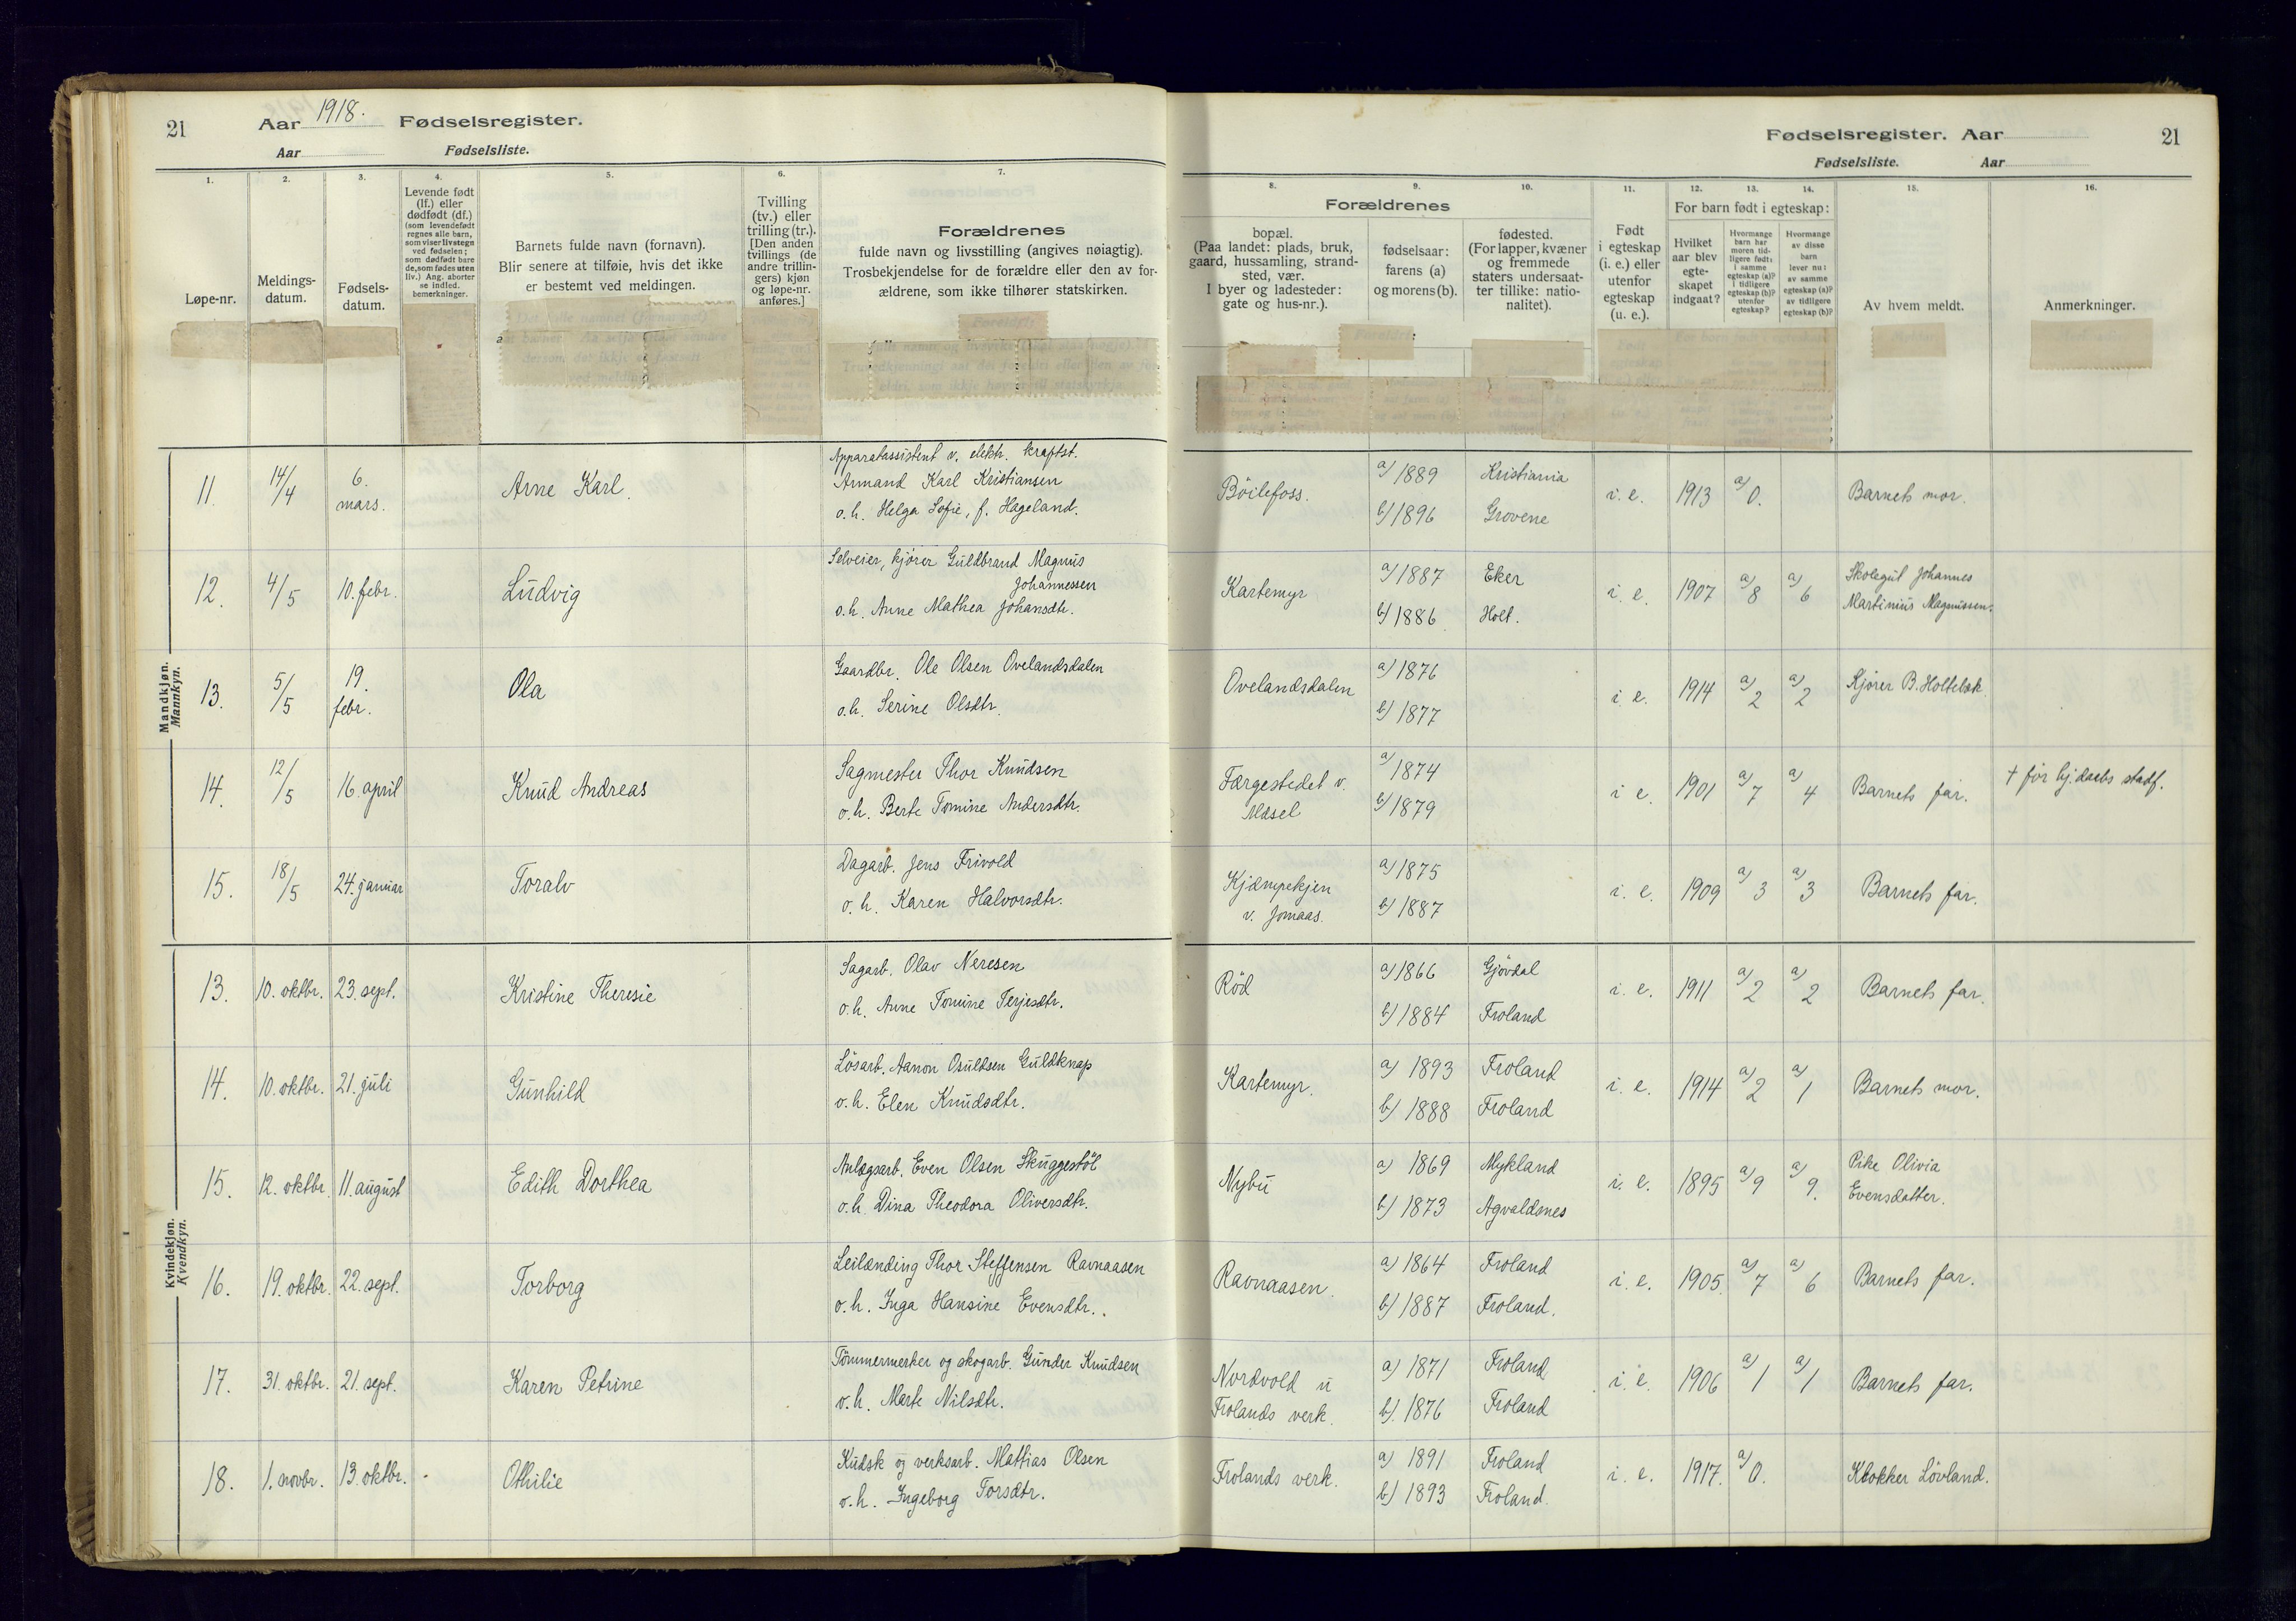 21 Aar 1918. Fødselsregister.
Aar Fødselsliste.
Fødselsregister. Aar 21
Fødselsliste. Aar
1. 2. 3. 4. 5. 6. 7.
Løpe-nr.
Meldings-
datum.
Fødsels-
datum.
Levende født
(lf.) eller
dødfødt (df.)
(som levendefødt
regnes alle barn,
som viser livstegn
ved fødselen;
som dødfødt bare
de, som fødes uten
liv.) Ang. aborter
se indled.
bemerkninger.
Barnets fulde navn (fornavn).
Blir senere at tilføie, hvis det ikke
er bestemt ved meldingen.
Tvilling
(tv.) eller
trilling (tr.).
[Den anden
tvillings (de
andre trillin-
gers) kjøn
og løpe-nr.
anføres.]
Forældrenes
fulde navn og livsstilling (angives nøiagtig).
Trosbekjendelse for de forældre eller den av for-
ældrene, som ikke tilhører statskirken.
8. 9. 10. 11. 12. 13. 14. 15. 16.
Forældrenes
bopæl.
(Paa landet: plads, bruk,
gaard, hussamling, strand-
sted, vær.
I byer og ladesteder:
gate og hus-nr.).
fødselsaar:
farens (a)
og morens (b).
fødested.
(For lapper, kvæner
og fremmede
staters undersaat-
ter tillike: natio-
nalitet).
Født
i egteskap
(i. e.) eller
utenfor
egteskap
(u. e.).
For barn født i egteskap:
Hvilket
aar blev
egte-
skapet
indgaat?
Hvormange
barn har
moren tid-
ligere født:
i samme
egteskap (a)?
i tidligere
egteskap (b)?
utenfor
egteskap?
Hvormange
av disse
barn
lever nu:
av samme
egteskap (a)?
av tidligere
egteskap (b)?
Av hvem meldt.
Anmerkninger.
Mandkjøn.
Mannkyn.
11. 14/4 6. mars. Arne Karl.
Apparatassistent v. elektr. kraftst.
Armand Karl Kristiansen
o. h. Helga Sofie, f. Hageland.
Böilefoss. a) 1889 Kristiania
b) 1896 Grovene
i. e. 1913 a) 0. Barnets mor.
12. 4/5 10. febr. Ludvig
Selveier, kjører Guldbrand Magnus
Johannessen
o. h. Anne Mathea Johansdtr.
Kartemyr a) 1887 Eker
b) 1886 Holt.
i. e. 1907 a) 8 a) 6
Skolegut Johannes
Martinius Magnussen.
13. 5/5 19. febr. Ola
Gaardbr. Ole Olsen Ovelandsdalen
o. h. Serine Olsdtr.
Ovelandsdalen a) 1876
b) 1877
i. e. 1914 a) 2 a) 2 Kjører B. Holtebæk
14. 12/5 16. april Knud Andreas
Sagmester Thor Knudsen
o. h. Berte Tomine Andersdtr.
Færgestedet v.
Messel a) 1874
b) 1879
i. e. 1901 a) 7 a) 4 Barnets far. † før hj.daabs stadf.
15. 18/5 24. januar Toralv
Dagarb. Jens Frivold
o. h. Karen Halvorsdtr.
Kjæmpekjen
v. Jomaas. a) 1875
b) 1887
i. e. 1909 a) 3 a) 3 Barnets far.
Kvindekjøn.
Kvendkyn.
13. 10. oktbr. 23. sept. Kristine Theresie
Sagarb. Olav Neresen
o. h. Anne Tomine Terjesdtr.
Röd a) 1866 Gjövdal
b) 1884 Froland
i. e. 1911 a) 2 a) 2 Barnets far.
14. 10. oktbr. 21. juli Gunhild
Lösarb. Aanon Osuldsen Guldknap
o. h. Elen Knudsdtr.
Kartemyr. a) 1893 Froland
b) 1888 Froland
i. e. 1914 a) 2 a) 1 Barnets mor.
15. 12. oktbr. 11. august Edith Dorthea
Anlægsarb. Even Olsen Skuggestöl
o. h. Dina Theodora Oliversdtr.
Nybu a) 1869 Mykland
b) 1873 Agvaldsnes
i. e. 1895 a) 9 a) 9.
Pike Olivia
Evensdatter.
16. 19. oktbr. 22. sept. Torborg
Leilænding Thor Steffensen Ravnaasen
o. h. Inga Hansine Evensdtr.
Ravnaasen. a) 1864 Froland
b) 1887 Froland.
i. e. 1905. a) 7 a) 6 Barnets far.
17. 31. oktbr. 21. sept. Karen Petrine
Tömmermerker og skogarb. Gunder Knudsen
o. h. Marte Nilsdtr.
Nordvold u
Frolands verk. a) 1871 Froland
b) 1876 Froland
i. e. 1906 a) 1 a) 1 Barnets far.
18. 1. novbr. 13. oktbr. Othilie
Kudsk og verksarb. Mathias Olsen
o. h. Ingeborg Torsdtr.
Frolands verk. a) 1891 Froland
b) 1893 Froland.
i. e. 1917. a) 0. Klokker Lövland.